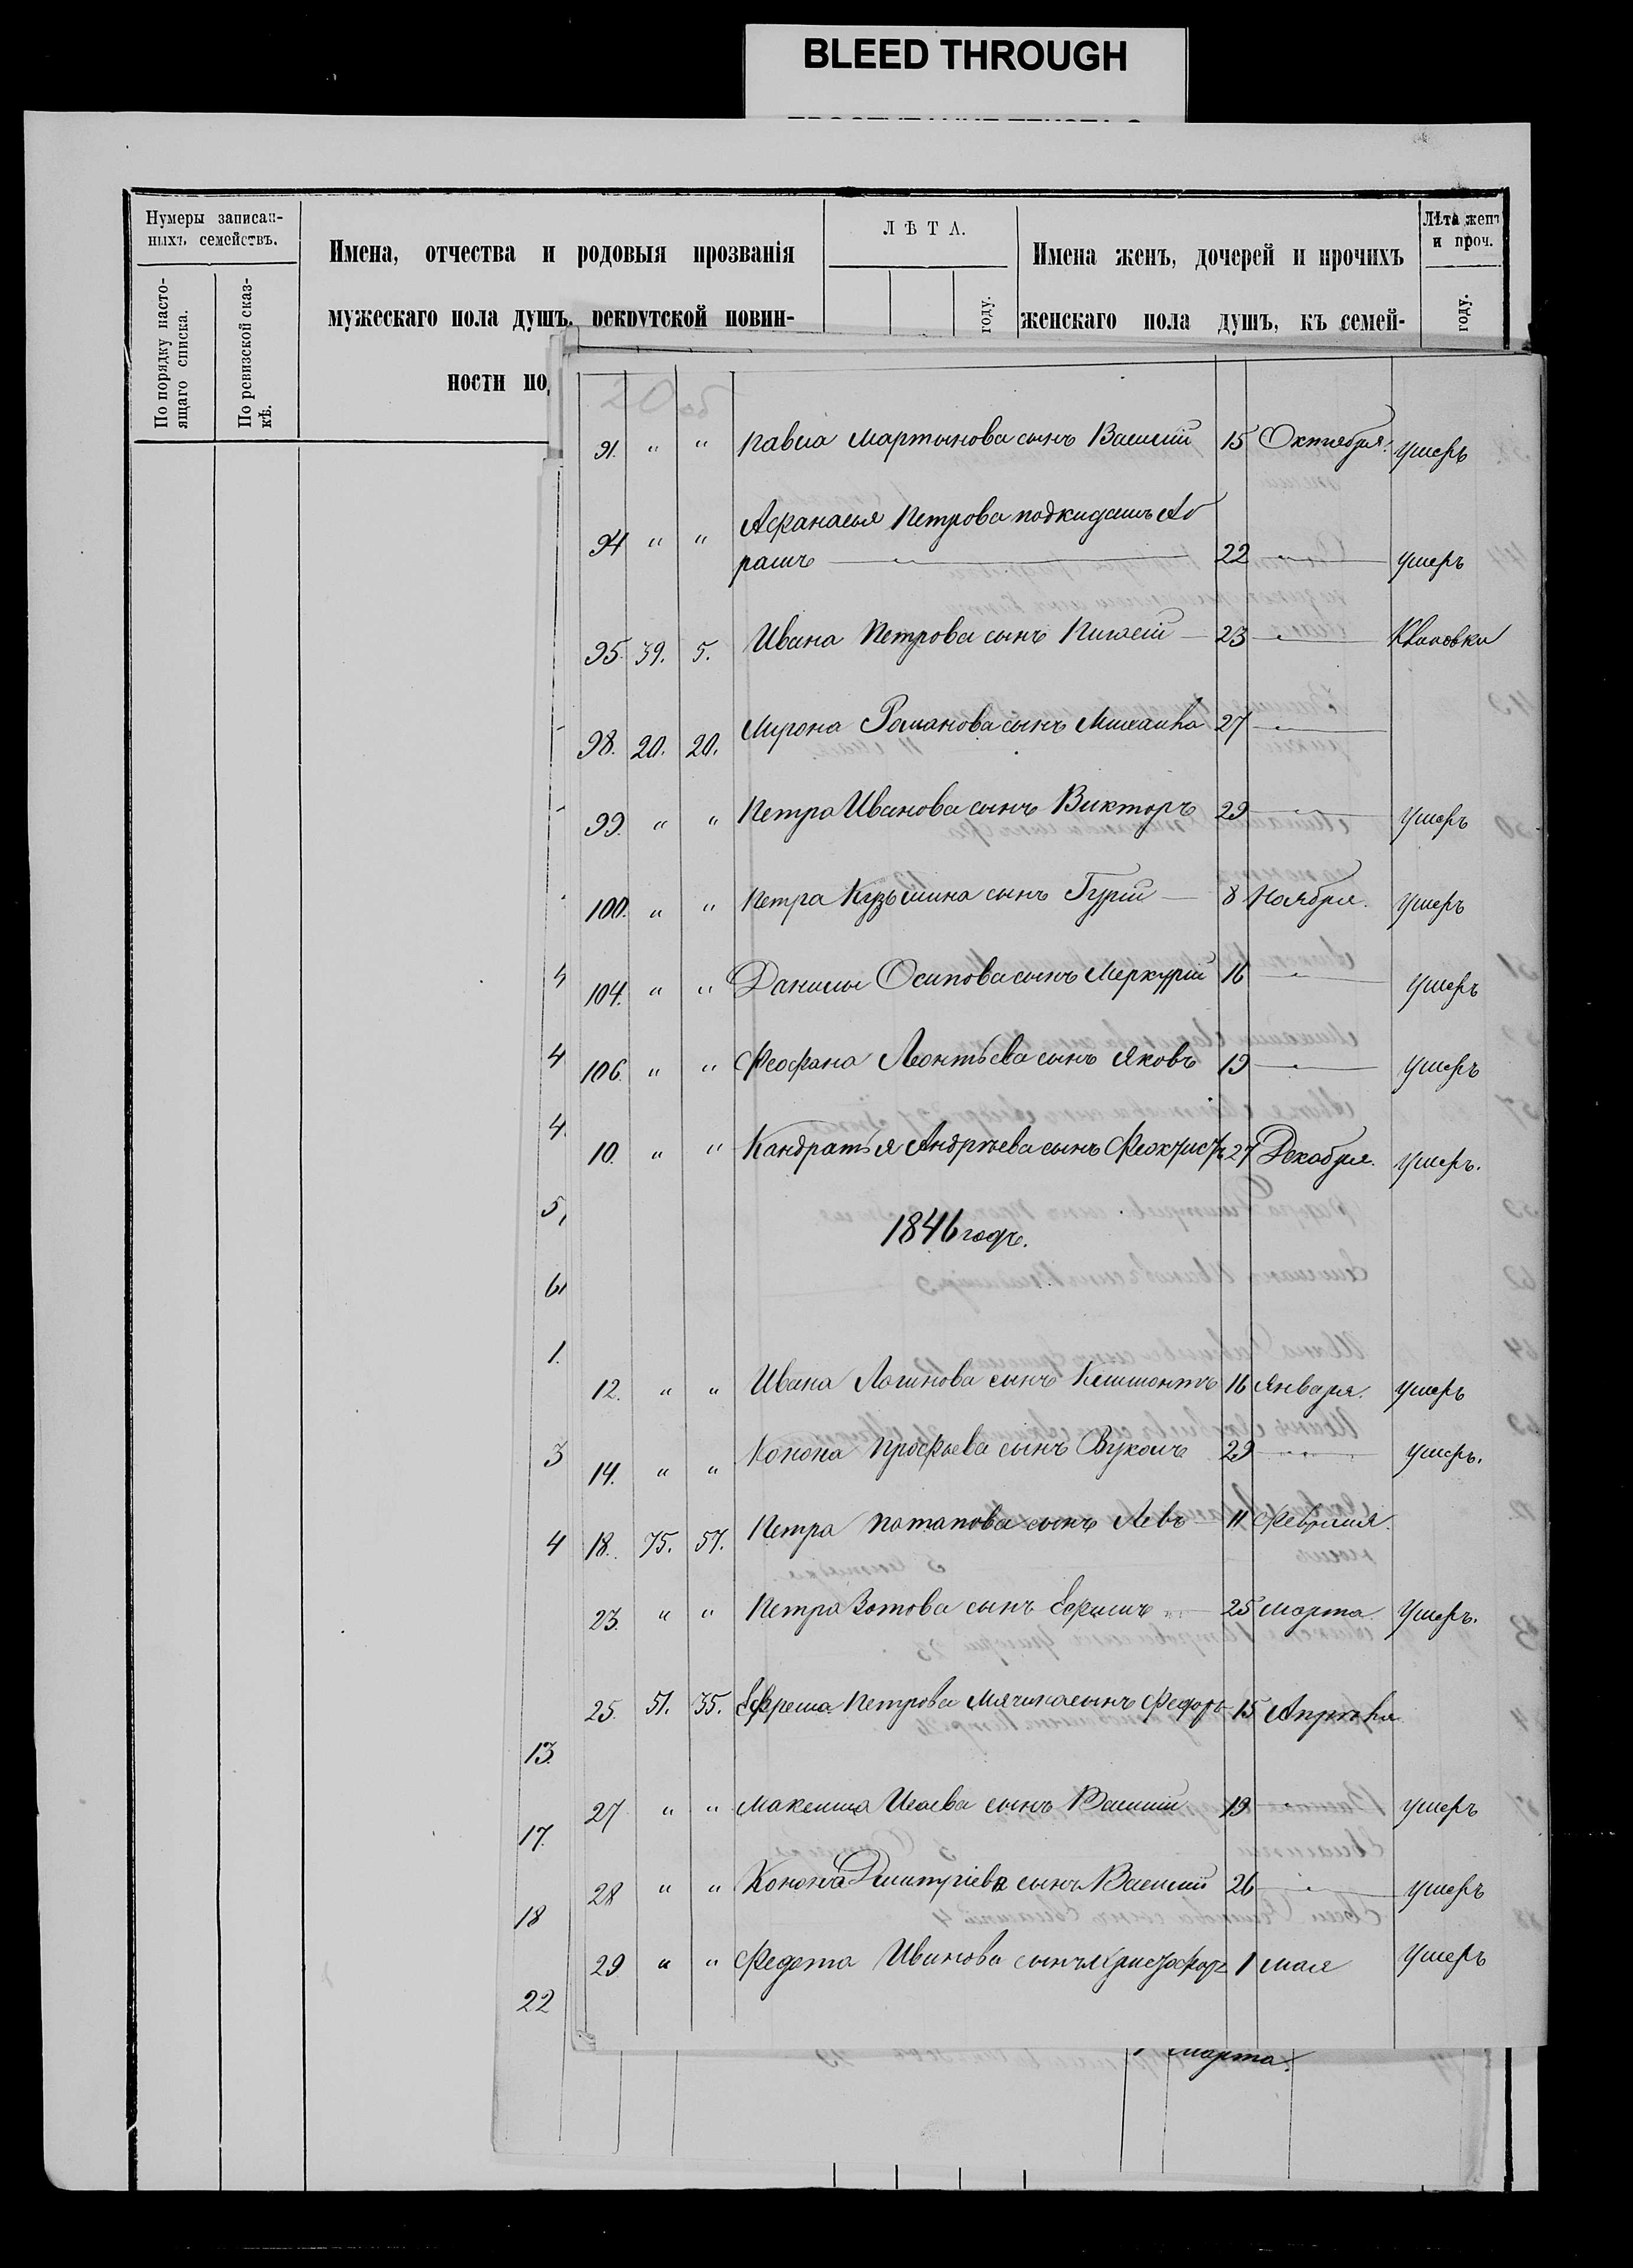 BLEED THROUGH
Нумеры записан-
ныхъ семействъ.
По порядку насто-
ящаго списка.
По ревизской сказ-
кѣ.
Имена, отчества и родовыя прозванія
мужескаго пола душъ, рекрутской повин-
ности по
ЛѢТА.
году.
Имена женъ, дочерей и прочихъ
женскаго пола душъ, къ семей-
Лѣта женъ
и проч.
году.
91. " " Павла Мартынова сынъ Василій 15 Октября. умеръ
94 " " Афанасья Петрова подкидышъ Аб
рамъ — " — 22 — " — умеръ
95. 39. 5. Ивана Петрова сынъ 23 — " —
98. 20. 20. Мирона Романова сынъ Михаила 27 — " —
99. " " Петра Иванова сынъ Викторъ 29 — " — умеръ
100. " " Петра Кузьмина сынъ Гурій — 8 Ноября. умеръ
4 104. " " Данилы Осипова сынъ Меркурій 16 — " — умеръ
4 106. " " Феофана Леонтьева сынъ Яковъ 19 — " — умеръ
4. 10. " " Кандратья Андрѣева сынъ Феоктистъ 27 Декабря. умеръ.
5,
1846 годъ.
6,
1.
12. " " Ивана Логинова сынъ 16 Января. умеръ
3 14. " " Конона сынъ Вуколъ 29 — " — умеръ.
4 18. 75. 57. Петра Потапова сынъ Левъ — 11 Февраля.
23. " " Петра Зотова сынъ Ефимъ — 25 марта умеръ.
25. 51. 35. Ефрема Петрова сынъ Федоръ 15 Апрѣля
13.
27 " " Максима Исаева сынъ Василій 19 — " — умеръ
17.
28 " " Конона Дмитріева сынъ Василій 26 — " — умеръ
18
29 " " Федота Иванова сынъ Христофоръ 1 мая умеръ
22
марта.